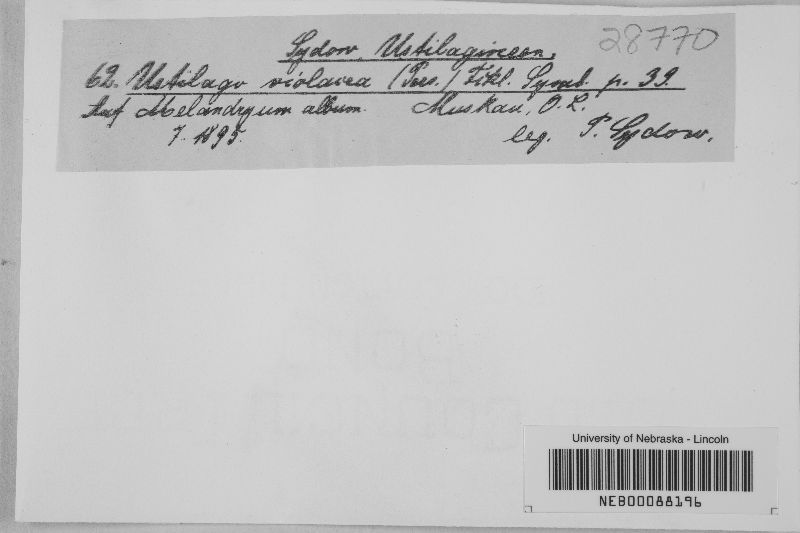 Sydow, Ustilagineen.
28770
62. Ustilago violacea (Pers.) Fckl. Symb. p. 39.
Auf Melandryum album. Muskau, O. L.
7. 1895. leg. P. Sydow.
University of Nebraska - Lincoln
NEB00088196